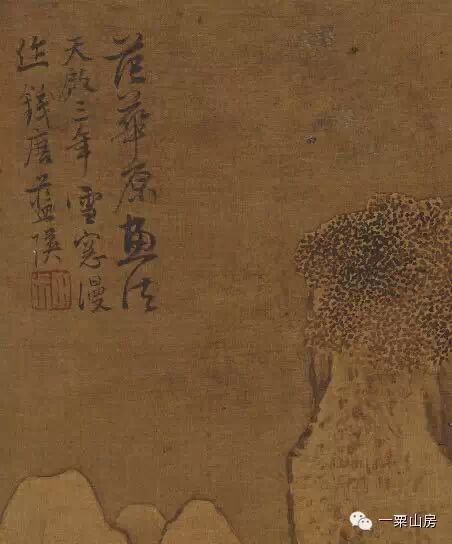 范華原畫法
天啟三年雪窓漫
作錢唐藍瑛
一粟山房